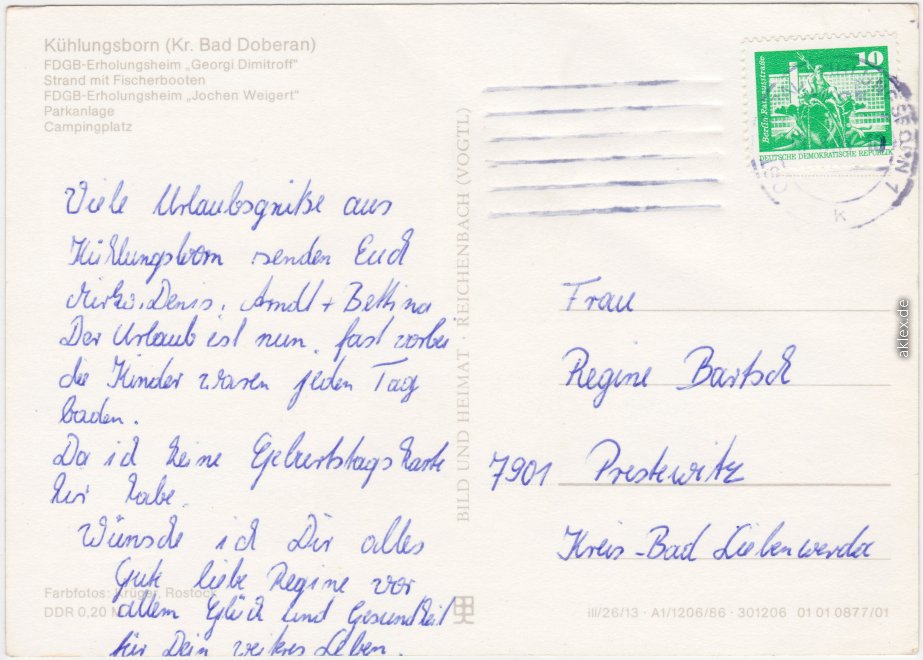 Kühlungsborn (Kr. Bad Doberan)
FDGB-Erholungsheim „Georgi Dimitroff"
Strand mit Fischerbooten
FDGB-Erholungsheim „Jochen Weigert"
Parkanlage
Campingplatz
Viele Urlaubsgrüße aus
Kühlungsborn senden Euch
Mirko, Denis, Arndt + Bettina
Der Urlaub ist nun fast vorbei
die Kinder waren jeden Tag
baden.
Da ich keine Geburtstagskarte
hir habe.
Wünsche ich Dir alles
Gute liebe Regine vor
allem Glück und Gesundheit
für Dein weitres Leben.
Farbfotos: Krüger, Rostock
DDR 0,20 M
BILD UND HEIMAT · REICHENBACH (VOGTL)
10
Berlin, Rathausstraße
DEUTSCHE DEMOKRATISCHE REPUBLIK
k
Frau
Regine Bartsch
7901 Prestewitz
Kreis-Bad Liebenwerda
III/26/13 · A1/1206/86 · 301206 01 01 0877/01
aklex.de